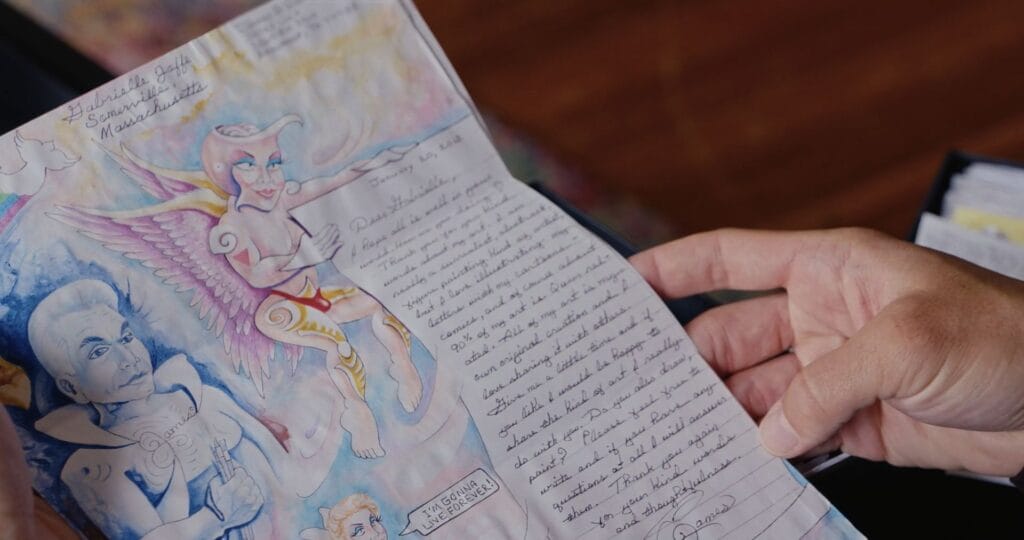 Gabrielle Joffe
Somerville
Massachusetts
January 20, 2012
Dear Gabrielle,
Hope all is well in your
world.
Thank you for your kind
words about my art. I am
really a surrealist abstract
figure painting kind of artist
but I love illustrating my
letters with my cartoons
90% of my art is Queer rel-
ated. All of my art is my
own original creation and I
love sharing it with others.
Give me a little time and if
you like I would be happy to
share the kind of art I really
do with you. Do you also draw/
paint? Please feel free to
write and if you have any
questions at all I will answer
them. Thank you again
for your kind words
and thoughtfulness.
James
James
I'M GONNA
LIVE FOREVER!